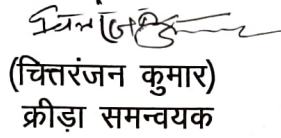 (चित्तरंजन कुमार)
क्रीड़ा समन्वयक